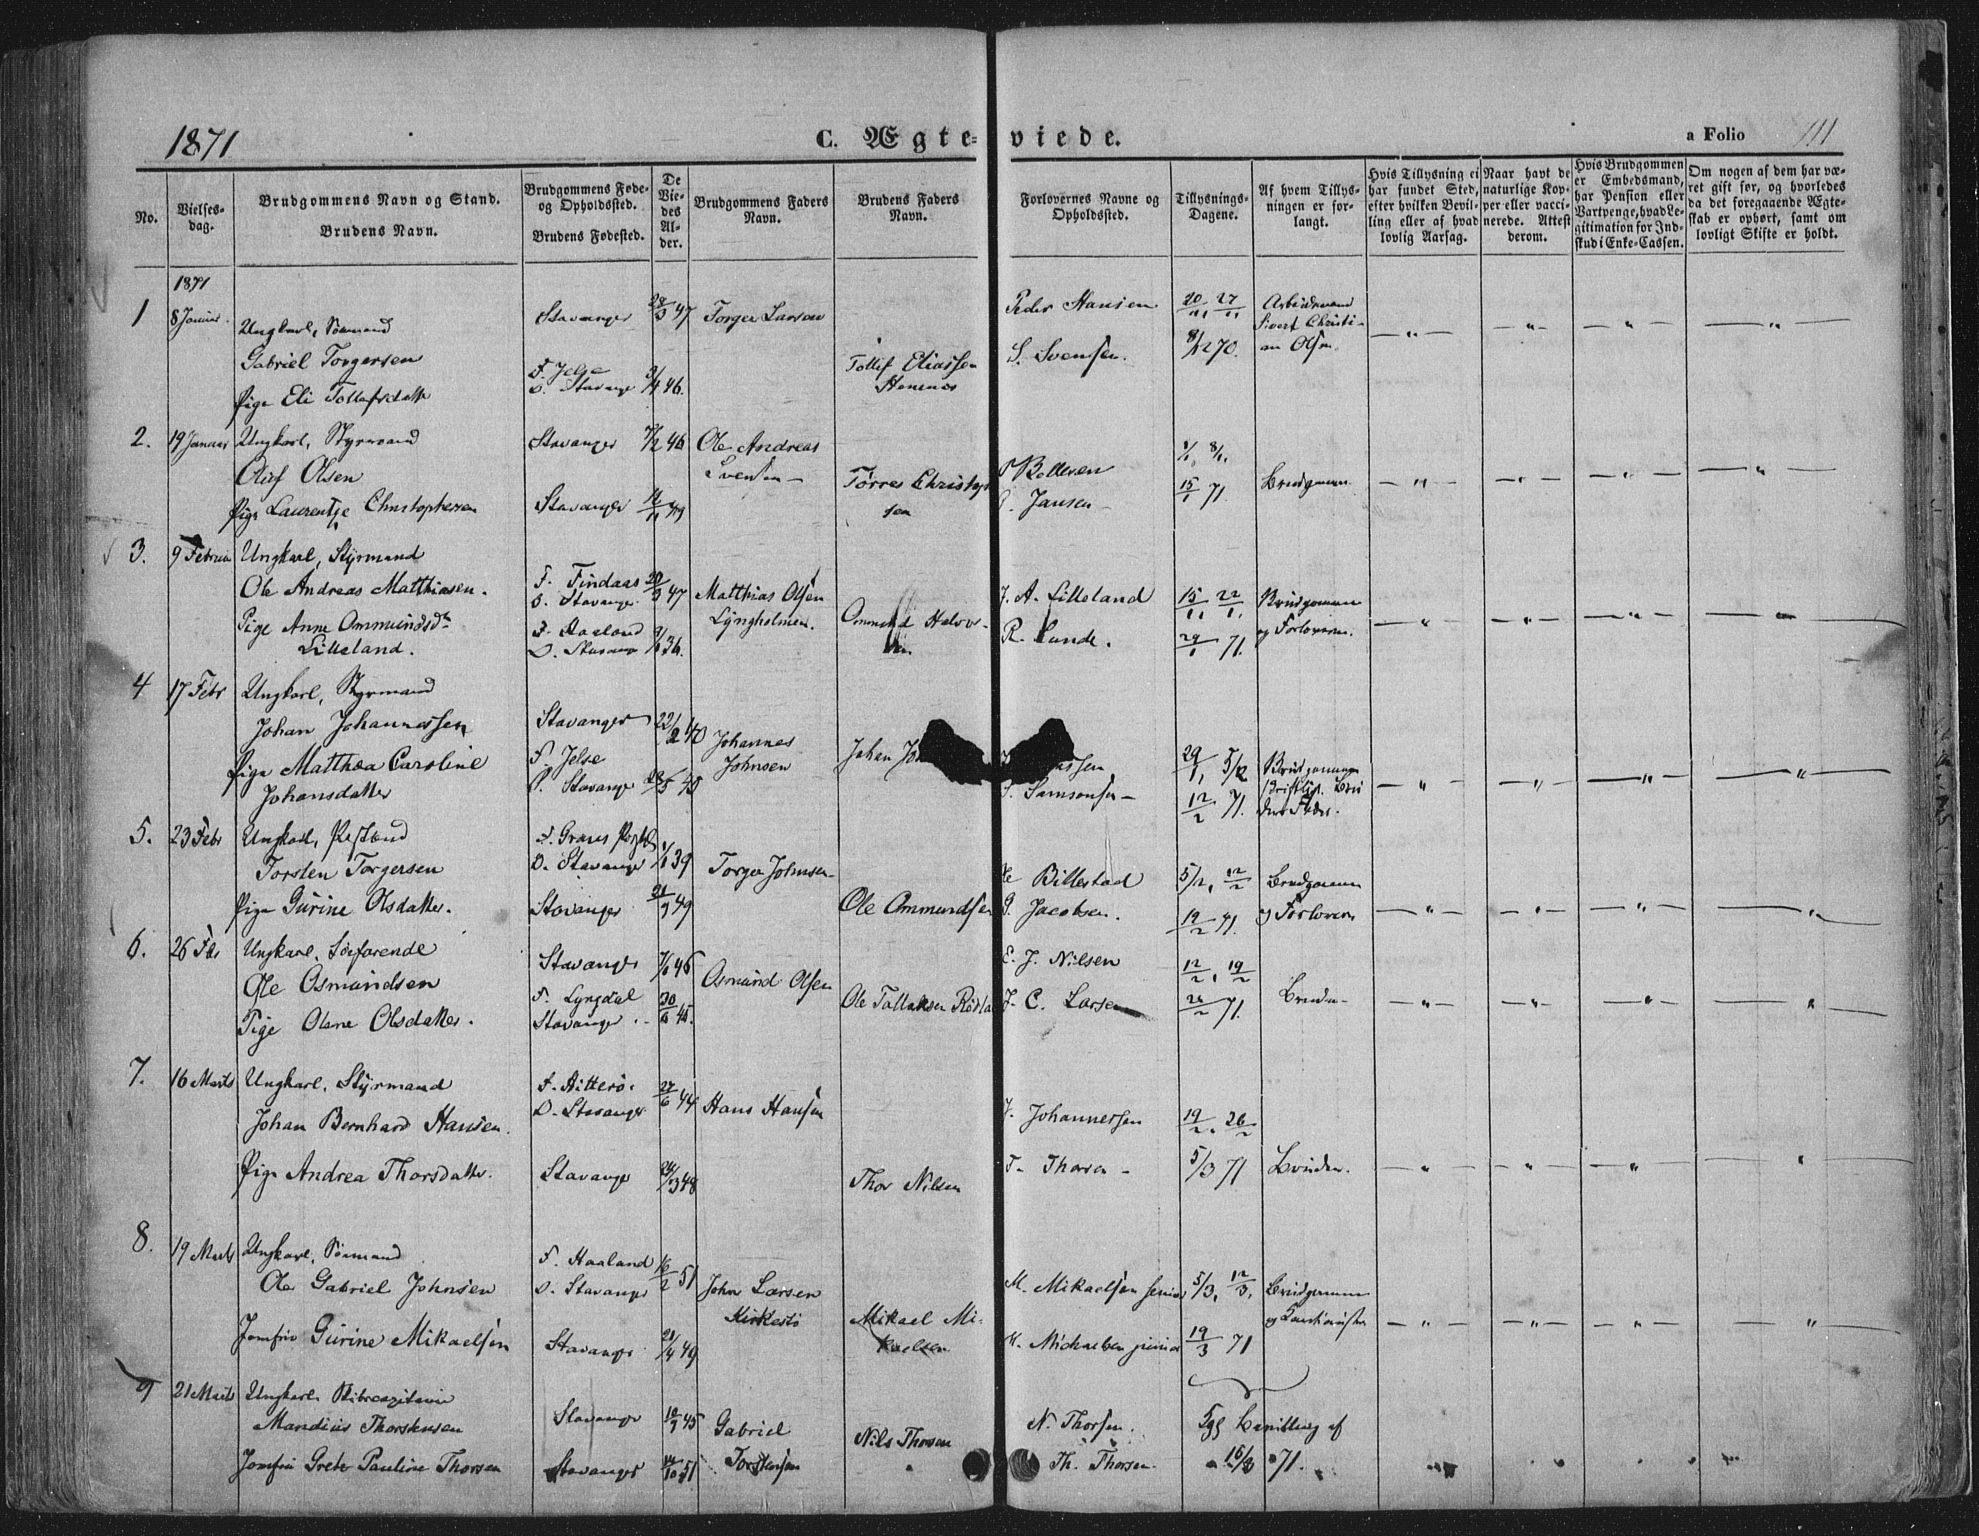 1871
C. Ægte=viede.
a Folio 111
No.
Vielses-dag.
Brudgommens Navn og Stand.
Brudens Navn.
Brudgommens Føde- og Opholdssted.
Brudens Fødested.
De Viedes Alder.
Brudgommens Faders Navn.
Brudens Faders Navn.
Forlovernes Navne og Opholdssted.
Tillysnings-Dagene.
Af hvem Tillysningen er forlangt.
Hvis Tillysning ei har fundet Sted, efter hvilken Bevilling eller af hvad lovlig Aarsag.
Naar havt de naturlige Kopper eller vaccinerede. Attest derom.
Hvis Brudgommen er Embedsmand, har Pension eller Vartpenge, hvad Legitimation for Indskud i Enke-Cassen.
Om nogen af dem har været gift før, og hvorledes da det foregaaende Ægteskab er ophørt, samt om lovligt Skifte er holdt.
1871
1 8 Januar Ungkarl, Sømand Stavanger 28/3 47 Torger Larsen Peder Hansen 20/11, 27/11 Arbeidsmand
Gabriel Torgersen S. Svensen. 8/12 70. Sivert Christian Olsen
Pige Eli Tollefsdatter F. Jelse O. Stavanger 46. Tollef Eliassen
2. 19 Januar Ungkarl, Styrmand Stavanger 7/2 46 Ole Andreas Svensen 1/1, 8/1,
Oluf Olsen 15/1 71. Brudgommen
Pige Laurentse Christophersen Stavanger Tørres Christophersen Jansen
3. 9 Februar Ungkarl, Styrmand
Ole Andreas Matthiasen. F. Findaas O. Stavanger 20/3 47 Matthias Olsen Lyngholmen. J. A. Lilleland 15/1, 22/1, Brudgommen
Pige Anne Ommundsdtr F. Haaland O. Stavanger 36. Ommund Halvorsen R. Lunde. 29/1 71. og Forloveren.
Lilleland.
4 17 Febr Ungkarl, Styrmand
Johan Johannessen Stavanger 22/2 40 Johannes Johnsen 29/1, 5/2 Brudgommen
Pige Matthea Caroline F. Jelse O. Stavanger 28/5 Johan S. Samsonsen 12/2 71.
Johansdatter
5. 23 Febr Ungkarl, O. Stavanger 1/1 39
Torsten Torgersen Torger Johnsen Billestad 5/2, 12/2 Brudgommen
Pige Gurine Olsdatter. Stavanger 21/9 49 Ole Ommundsen G. Jacobsen. 19/2 71. og Forloveren
6. 26 Febr Ungkarl, Søfarende Stavanger 46 Osmund Olsen E. J. Nilsen 12/2, 19/2
Ole Osmundsen
Pige Olene Olsdatter. F. Lyngdal Stavanger 30/6 45. Ole Tallaksen J. C. Larsen 26/2 71. Bruden
7. 16 Marts Ungkarl, Styrmand F. Hitterø. O. Stavanger 27/6 44 Hans Hansen
Johan Bernhard Hansen. J. Johannessen 19/2, 26/2
Pige Andrea Thorsdatter. Stavanger 48 Thor Nilsen T. Thorsen 5/3 71 Bruden.
8. 19 Marts Ungkarl, Sømand F. Haaland O. Stavanger 16/2 51 John Larsen
Ole Gabriel Johnsen M. Mikaelsen senior 5/3, 12/3, Brudgommen
Jomfru Gurine Mikaelsen Stavanger 21/4 49 Mikael Mikaelsen M. Mickaelsen junior 19/3 71
9 21 Marts Ungkarl
Mandius Thorstensen Stavanger 45 Gabriel Torstensen N. Thorsen. Bevilling af
Jomfru Grete Pauline Thorsen Stavanger 51 Nils Thorsen Th. Thorsen. 15/3 71.